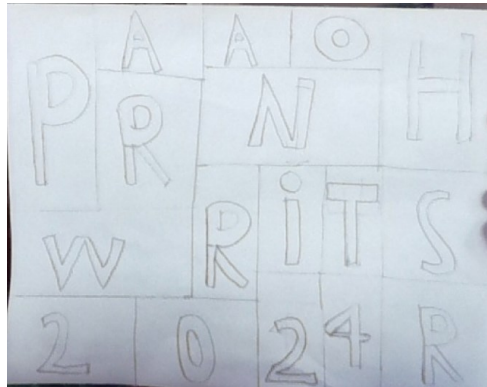 P A A O H
R N
W R i T S
2 0 2 4 R